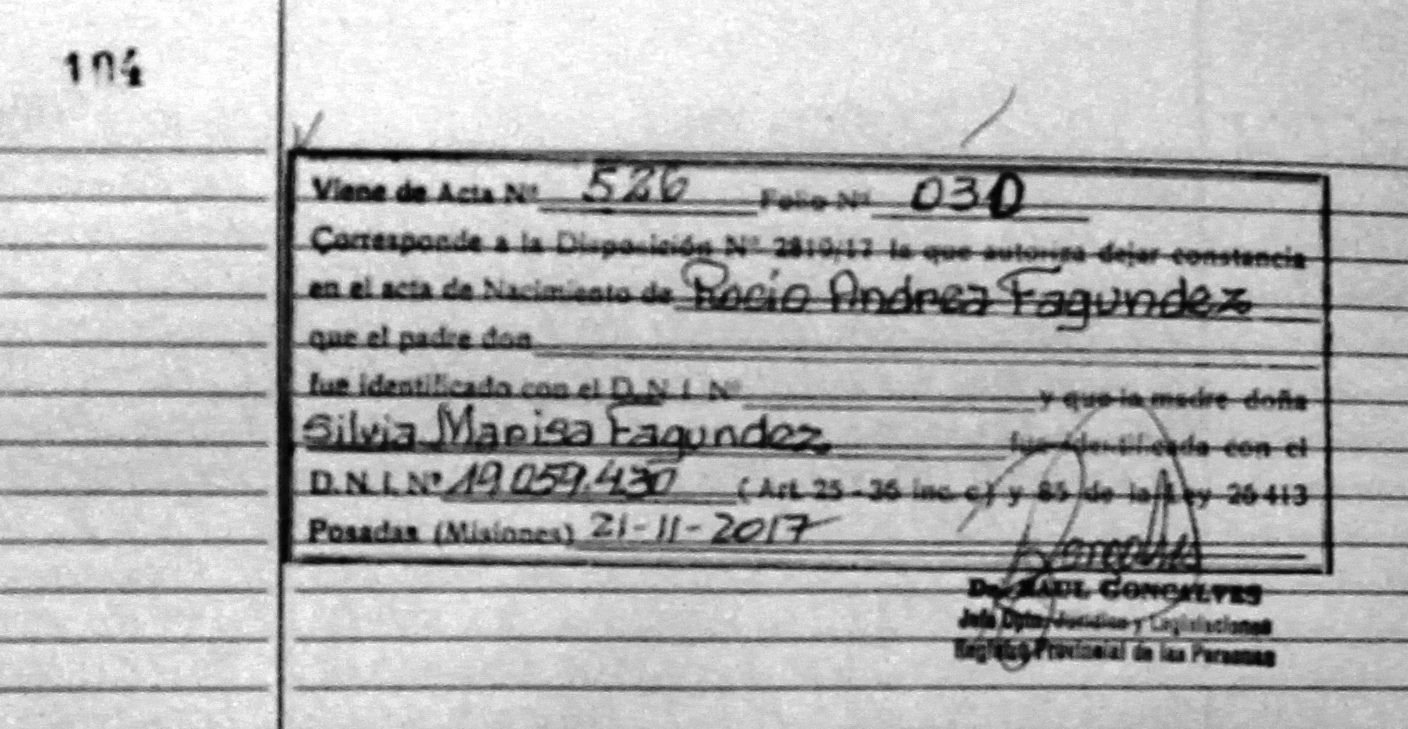 104
Viene de Acta Nº 526 Folio Nº 030
Corresponde a la Disposición Nº 2819/17 la que autoriza dejar constancia
en el acta de Nacimiento de Rocio Andrea Fagundez
que el padre don
fue identificado con el D.N.I. Nº y que la madre doña
Silvia Marisa Fagundez fue identificada con el
D.N.I. Nº 19.059.430 (Art. 25 - 36 inc. c) y 85 de la Ley 26413
Posadas (Misiones) 21-11-2017
Dr. RAUL GONCALVES
Jefe Dpto. Jurídico y Legislaciones
Registro Provincial de las Personas